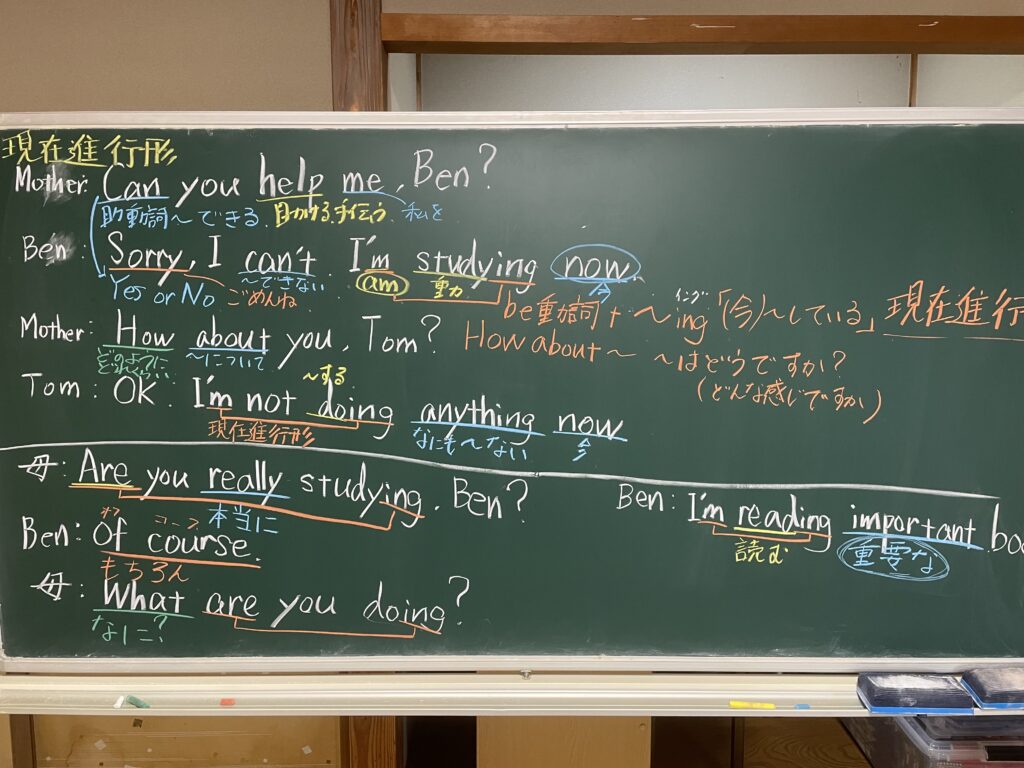 現在進行形
Mother: Can you help me, Ben?
助動詞～できる 助ける,手伝う 私を
Ben: Sorry, I can't. I'm studying now.
Yes or No ごめんね ～できない am 動 今
be動詞 + ～ing イング 「(今)～している」 現在進行
Mother: How about you, Tom?
どのように ～について
How about～ ～はどうですか?
(どんな感じですか)
Tom: OK. I'm not doing anything now
～する
現在進行形 なにも～ない 今
母: Are you really studying, Ben?
本当に
Ben: Of course.
オフ コース
もちろん
母: What are you doing?
なに?
Ben: I'm reading important boo
読む 重要な